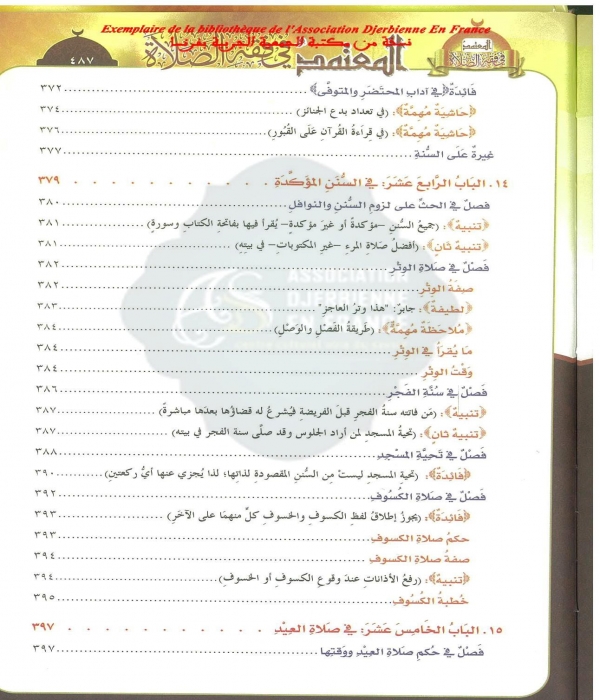 Exemplaire de la bibliothèque de l'Association Djerbienne En France
نسخة من مكتبة الجمعية الجربية بفرنسا
٤٨٧
المعتمد في فقه الصلاة
المعتمد في فقه الصلاة
فَائِدَة ﴿في آداب المحتضَر والمتوفَّى﴾ ٣٧٢
﴿حَاشِيَة مُهِمَّة﴾: (في تعداد بدع الجنائز) ٣٧٤
﴿حَاشِيَة مُهِمَّة﴾: (في قِراءَةُ القُرآنِ عَلَى القُبُورِ) ٣٧٦
غيرة عَلَى السُّنةِ ٣٧٧
١٤. البَابُ الرَّابعَ عَشَرَ: في السُّنَنِ المُؤَكَّدَةِ ٣٧٩
فَصلٌ في الحثِّ على لزومِ السُّننِ والنَّوافلِ ٣٨٠
﴿تنبية﴾: (جميعُ السُّننِ –مؤكدةً أو غيرَ مؤكدةٍ- يُقرأ فيها بفاتحة الكتاب وسورة) ٣٨١
﴿تنبية ثَانٍ﴾: (أفضلُ صلاة المرء –غيرَ المكتوباتِ- في بيتِهِ) ٣٨١
فَصْلٌ في صَلاةِ الوِتْرِ ٣٨٢
صفةُ الوِترِ ٣٨٢
﴿لطيفة﴾: جابرٌ: "هذا وترُ العاجز" ٣٨٣
﴿مُلاحَظَة مُهِمَّة﴾: (طَرِيقَةُ الفَصْلِ والوَصْلِ) ٣٨٤
مَا يُقرَأ في الوِترِ ٣٨٤
وَقْتُ الوِترِ ٣٨٤
فَصْلٌ في سُنَّةِ الفَجْرِ ٣٨٦
﴿تنبية﴾: (مَن فاتته سنةُ الفجرِ قبلَ الفريضةِ فيُشرعُ له قضاؤها بعدَها مباشرةً) ٣٨٧
﴿تنبية ثانٍ﴾: (تحيةُ المسجد لمن أراد الجلوس وقد صلَّى سنة الفجر في بيته) ٣٨٧
فَصْلٌ في تَحيَّةِ المَسْجِدِ ٣٨٨
﴿فَائِدَة﴾: (تحية المسجد ليستْ مِن السُّننِ المقصودةِ لذاتها؛ لذا يُجزي عنها أيُّ ركعتينِ) ٣٩٠
فَصْلٌ في صَلاةِ الكُسُوفِ ٣٩٢
﴿فَائِدَة﴾: (يجوزُ إطلاقُ لفظِ الكسوفِ والخسوفِ كلٍّ منهمَا على الآخرِ) ٣٩٣
حكمُ صلاةِ الكسوفِ ٣٩٣
صفةُ صلاةِ الكسوفِ ٣٩٤
﴿تنبية﴾: (رفعُ الأذاناتِ عندَ وقوعِ الكسوفِ أو الخسوفِ) ٣٩٤
خُطبةُ الكُسُوفِ ٣٩٥
١٥. البَابُ الخَامِسَ عَشَرَ: في صَلاةِ العِيْدِ ٣٩٧
فَصْلٌ في حُكمِ صَلاةِ العِيْدِ ووَقتِها ٣٩٧
ASSOCIATION
DJERBIENNE
EN FRANCE